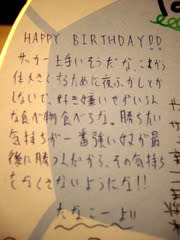 HAPPY BIRTHDAY!!
サッカー上手いそうだな、これから
体大きくするために夜ふかしとか
しないで、好き嫌いせずいろん
な食べ物食べろな。勝ちたい
気持ちが一番強い奴が最
後に勝つんだから、その気持ち
をなくさないようにな!!
たなこーより